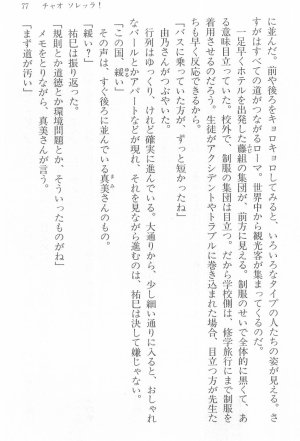 77　チャオ ソレッラ！
に並んだ。前や後ろをキョロキョロしてみると、いろいろなタイプの人たちの姿が見える。さ
すがはすべての道がつながるローマ。世界中から観光客が集まってくるのだ。
一足早くホテルを出発した藤組の集団が、前方に見える。制服のせいで全体的に黒くて、あ
る意味目立っていた。校外で、制服の集団は目立つ。だから学校側は、修学旅行にまで制服を
着用させるのだろう。生徒がアクシデントやトラブルに巻き込まれた場合、目立つ方が先生た
ちも早く反応できるから。
「バスに乗っていた方が、ずっと短かったね」
由乃さんがつぶやいた。
行列はゆっくり、けれど確実に進んでいる。大通りから、少し細い通りに入ると、おしゃれ
なバールとかアパートなどが現れ、それを見ながら進むのは、祐巳は決して嫌じゃない。
「この国、緩い」
その声は、すぐ後ろに並んでいる真美さんのもの。
「緩い？」
祐巳は振り返った。
「規則とか道徳とか環境問題とか、そういったものがね」
メモをとりながら、真美さんが言う。
「まず道が汚い」